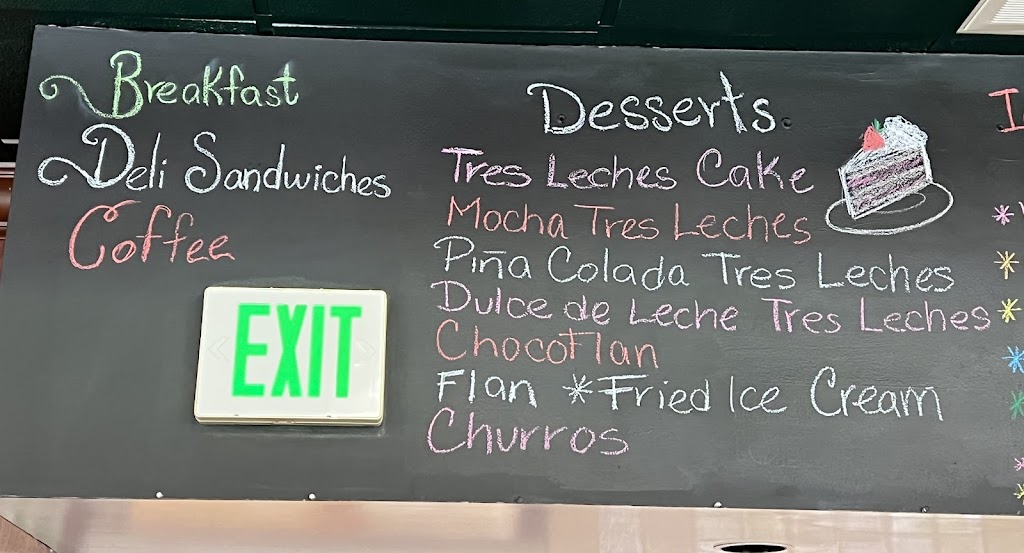 Breakfast
Deli Sandwiches
Coffee
EXIT
Desserts
Tres Leches Cake
Mocha Tres Leches
Piña Colada Tres Leches
Dulce de Leche Tres Leches
ChocoFlan
Flan *Fried Ice Cream
Churros